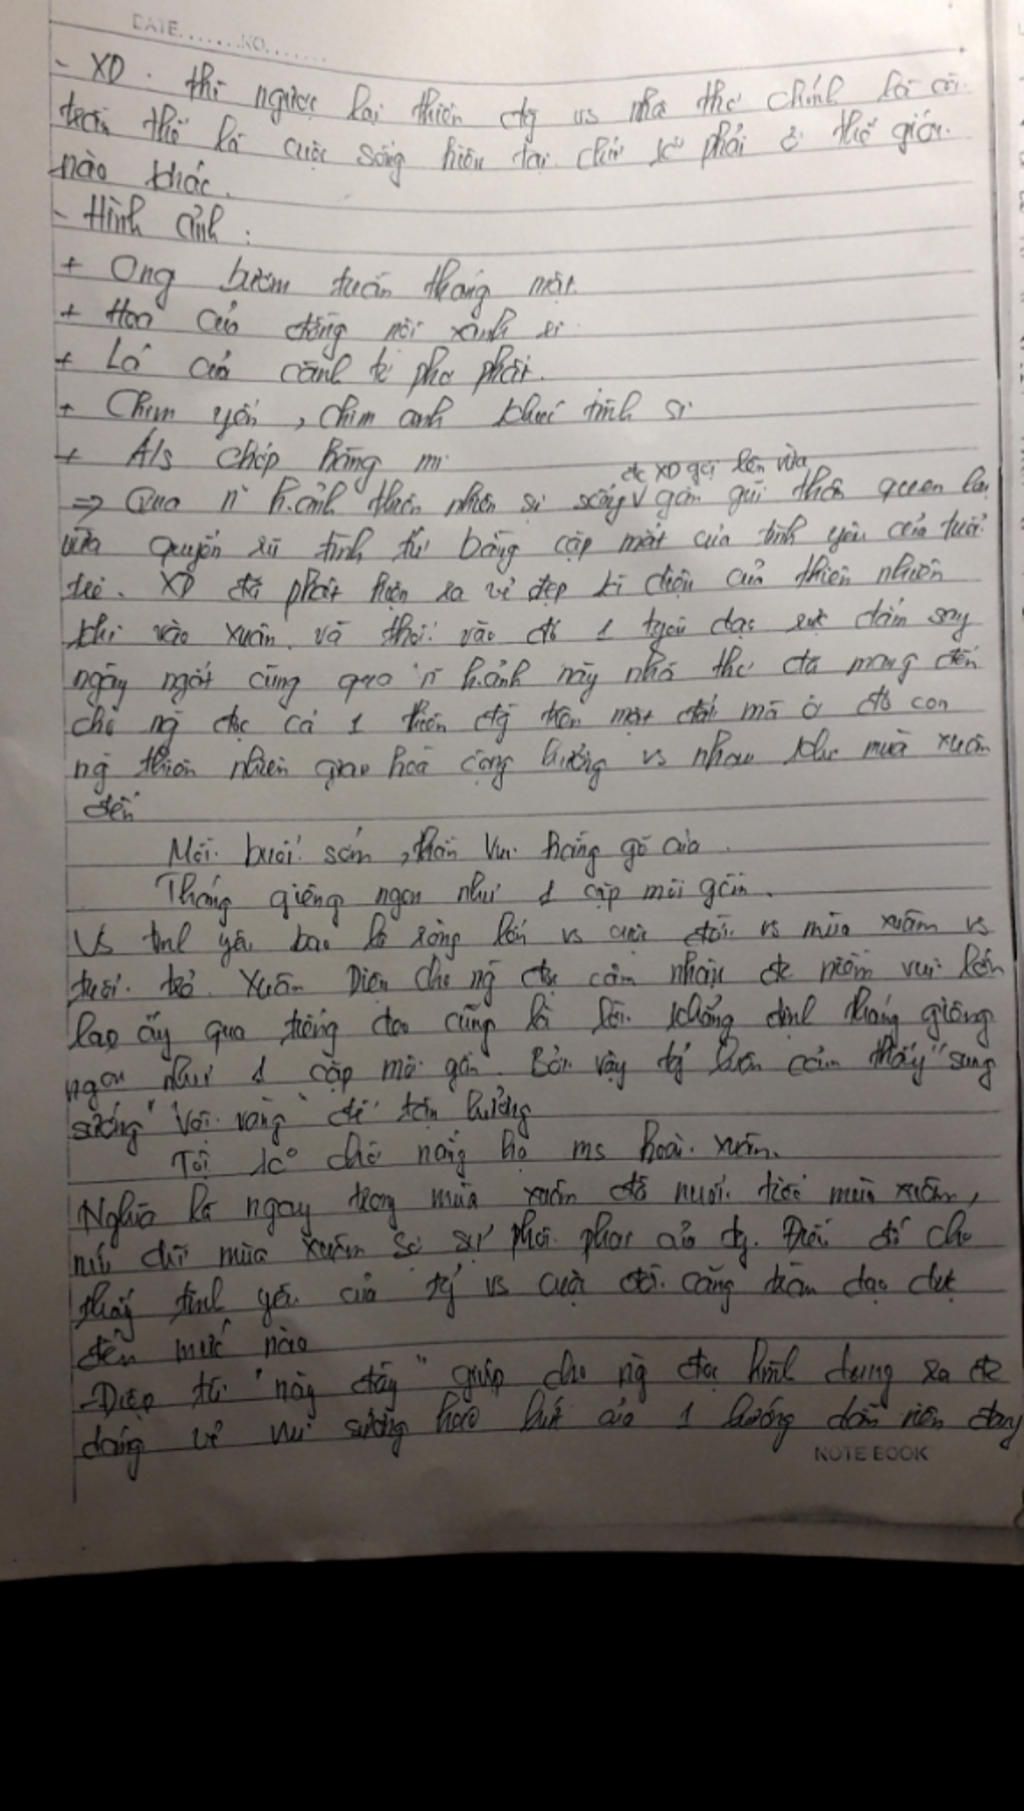 DATE.......NO.......
- XD. thì ngược lại thiên đg vs nhà thơ chính là cõi
trần thế là cuộc sống hiện tại chứ k° phải ở thế giới
nào khác.
- Hình ảnh :
+ Ong bướm tuần tháng mật.
+ Hoa của đồng nội xanh rì
+ Lá của cành tơ phơ phất.
+ Chim yến, chim anh khúc tình si
+ A/s chớp hàng mi
đc XD gợi lên vừa
=> Qua n~ h.ảnh thiên nhiên sự sống V gần gũi thân quen lại
vừa quyến rũ tình tứ bằng cặp mắt của tình yêu của tuổi
trẻ. XD đã phát hiện ra vẻ đẹp kì diệu của thiên nhiên
khi vào xuân và thổi vào đó 1 tyêu dạt rứt đắm say
ngây ngất cũng qua n~ h.ảnh này nhà thơ đã mang đến
cho ng đọc cả 1 thiên đg trên mặt đất mà ở đó con
ng thiên nhiên giao hoà cộng hưởng vs nhau khi mùa xuân
đến
Mỗi buổi sớm, thần Vui hằng gõ cửa.
Tháng giêng ngon như 1 cặp môi gần.
Vs tình yêu bao la rộng lớn vs cuộc đời vs mùa xuân vs
tuổi trẻ. Xuân Diệu cho ng đọc cảm nhận đc niềm vui lớn
lao ấy qua tiếng cũng là lời khẳng định tháng giêng
ngon như 1 cặp môi gần. Bởi vậy tg luôn cảm thấy "sung
sướng" "vội vàng" để tận hưởng
Tôi k° chờ nắng hạ ms hoài xuân.
Nghĩa là ngay trong mùa xuân đã nuối tiếc mùa xuân,
níu chữ mùa xuân sợ sự phôi phai của tg. Điều đó cho
thấy tình yêu của tg vs cuộc đời càng trầm dạo dực
đến mức nào
- Điệp từ "này đây" giúp cho ng đọc hình dung ra đc
dáng vẻ vui sướng háo hức của 1 hướng dẫn viên đang
NOTE BOOK